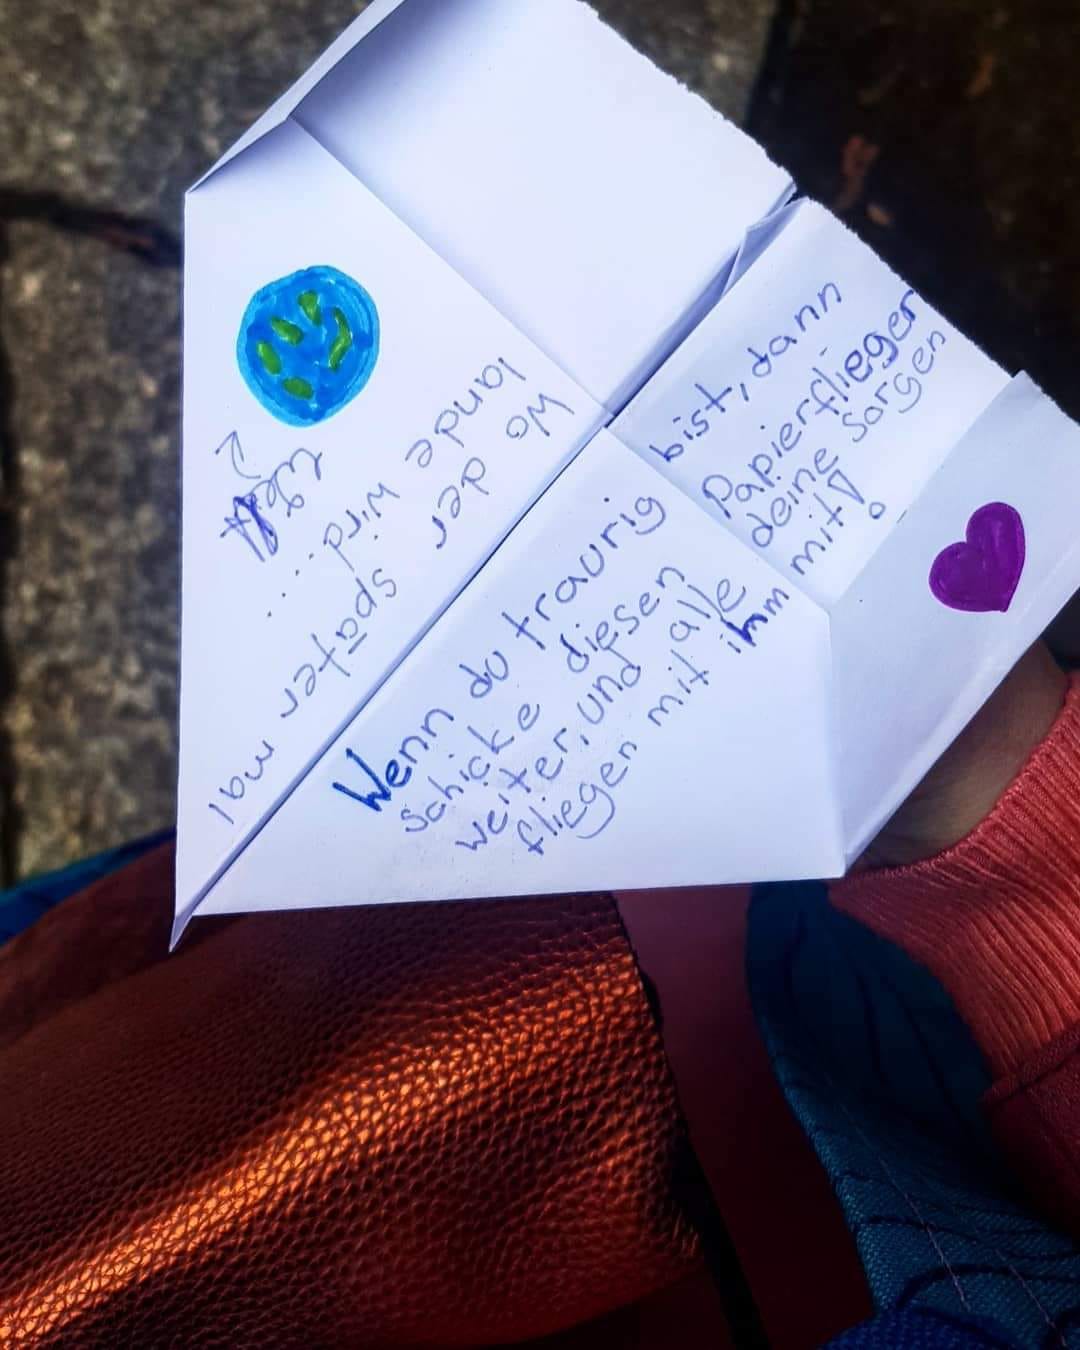 Wo der später mal
lande wird...
Wenn du traurig bist, dann
schicke diesen Papierflieger
weiter, und alle deine sorgen
fliegen mit ihm mit!